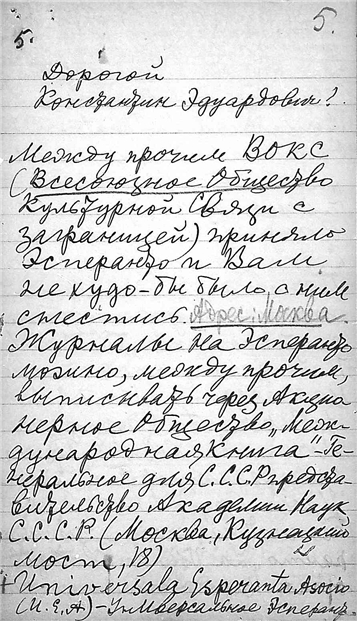 5.
5.
Дорогой
Константин Эдуардович!
Между прочим ВОКС
(Всесоюзное Общество
Культурной Связи с
заграницей) приняло
Эсперанто и Вам
не худо-бы было, с ним
снестись. Адрес: Москва.
Журналы на Эсперанто
можно, между прочим,
выписывать через Акцио
нерное Общество „Меж-
дународная книга"-Ге-
неральное для С.С.С.Р предста-
вительство Академии Наук
С.С.С.Р. (Москва, Кузнецкий
мост, 18)
Universala Esperanta Asocio
(U.E.A)-Универсальное Эсперант